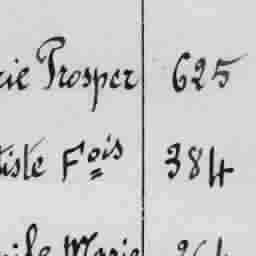 rie Prosper 625
tiste Fois 384
Marie 264